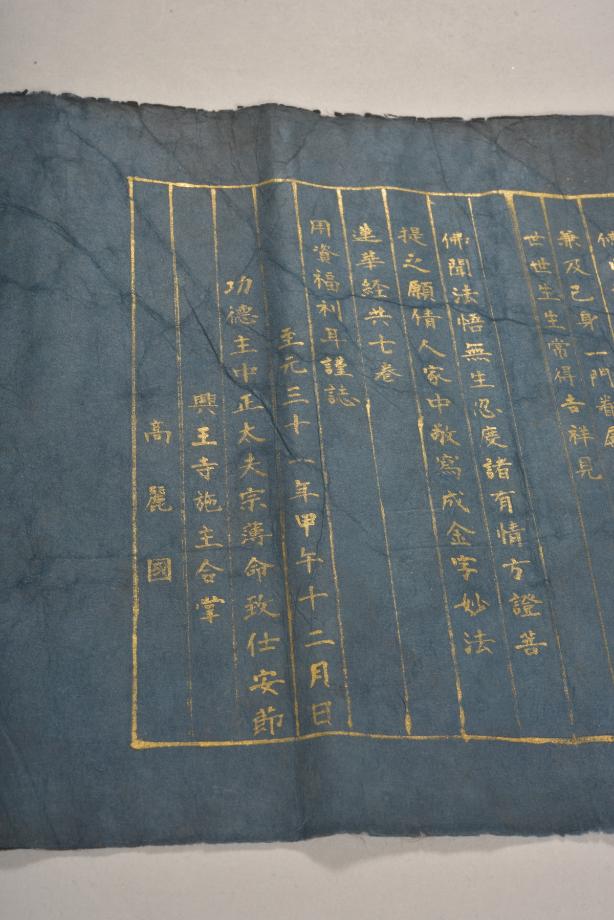 兼及己身一門眷屬
世世生生常得吉祥見
佛聞法悟無生忍度諸有情方證菩
提之願倩人家中敬寫成金字妙法
蓮華經共七卷
用資福利耳謹誌
至元三十一年甲午十二月日
功德主中正太夫宗薄命致仕安節
興王寺施主合掌
高麗國